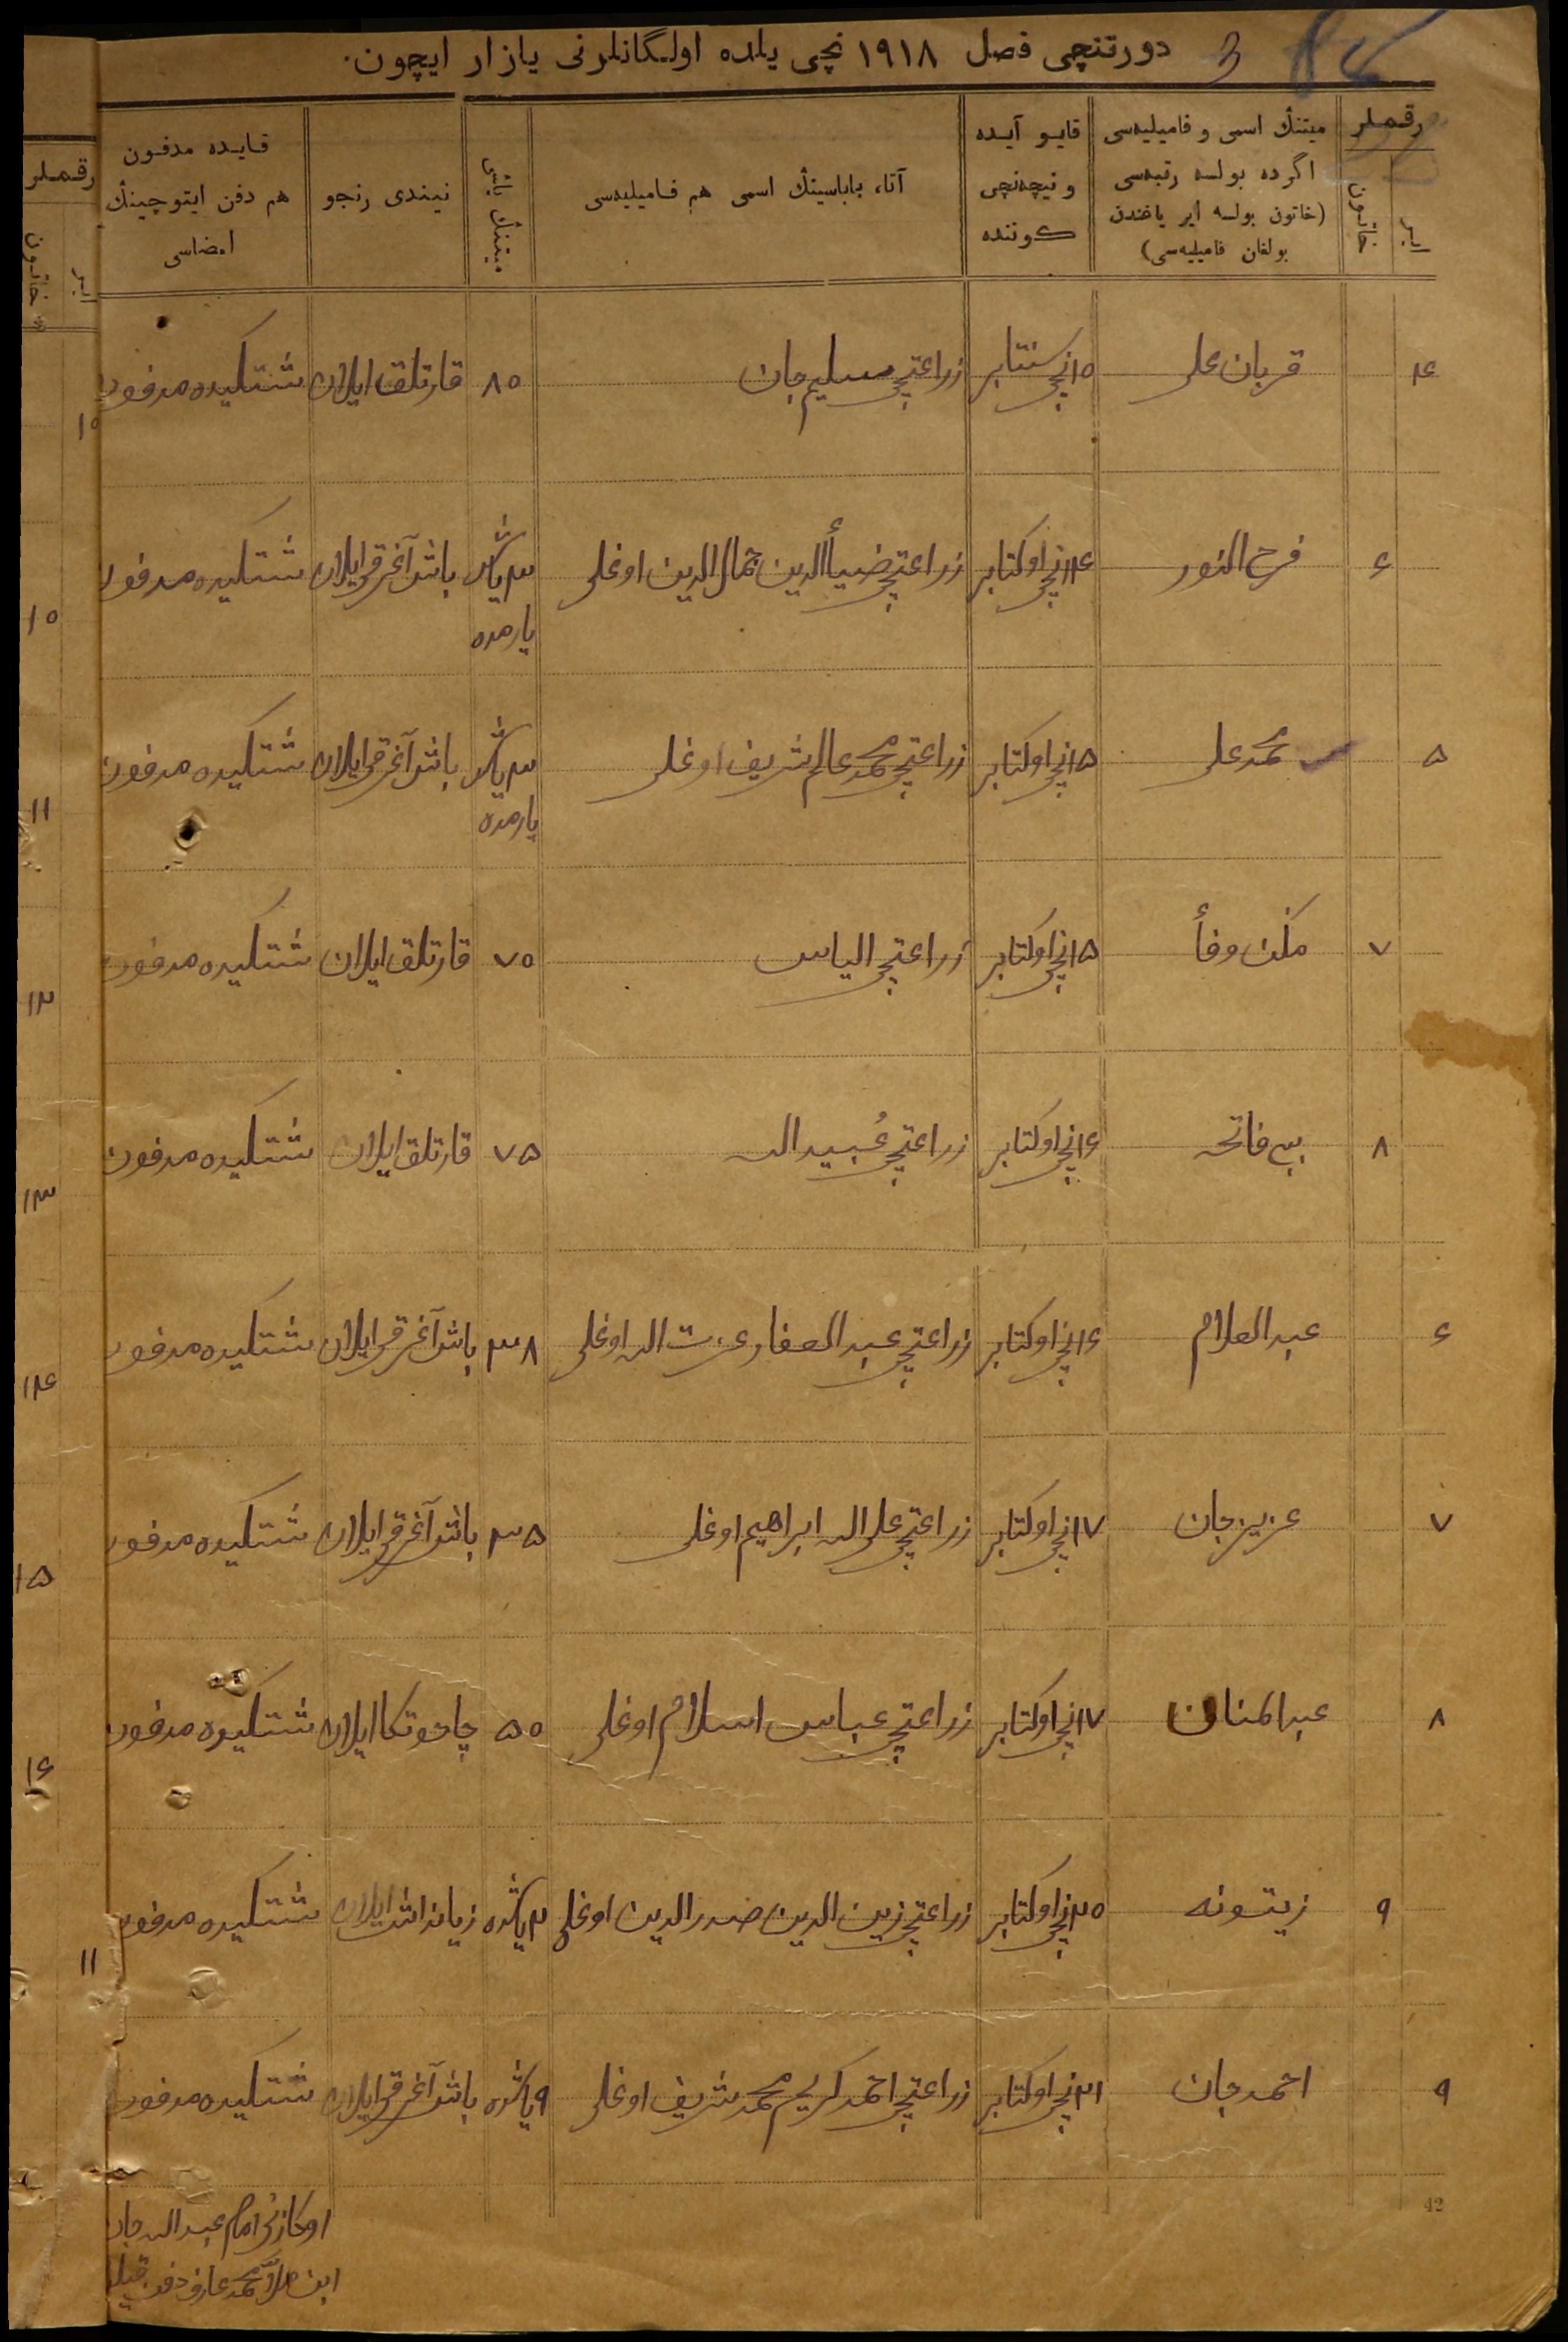 دورتنچی فصل ۱۹۱۸ نچی یلده اولگانلرنی یازار ایچون.
3
رقملر
ایر
خاتون
میتنڭ اسمی و فامیلیه‌سی اگرده بولسه رتبه‌سی (خاتون بولسه ایر یاغندن بولغان فامیلیه‌سی)
قایو آیده و نیچه‌نچی کوننده
آتا، باباسینڭ اسمی هم فامیلیه‌سی
میتنڭ یاشی
نیندی رنجو
قایده مدفون هم دفن ایتوچینڭ امضاسی
رقملر
ایر
خاتون
۴ قربان علی ۱۰نچی سنتابر زراعتچی سلیم جان ۸۰ قارتلق ایلان شتکیده مدفون
۶ فرح النور ۱۴نچی اوکتابر زراعتچی ضیأالدین جمال الدین اوغلی ۳ یاش یارمده باش آغرقی ایلان شتکیده مدفون
۵ محمد علی ۱۵نچی اوکتابر زراعتچی محمد عالم شریف اوغلی ۳ یاش یارمده باش آغرقی ایلان شتکیده مدفون
۷ وفأ ۱۵نچی اوکتابر زراعتچی الیاس ۷۰ قارتلق ایلان شتکیده مدفون
۸ بی فاتحه ۱۶نچی اوکتابر زراعتچی عُبیدالله ۷۵ قارتلق ایلان شتکیده مدفون
۶ عبدالعلام ۱۶نچی اوکتابر زراعتچی عبدالغفار عزت الله اوغلی ۳۸ باش آغرقی ایلان شتکیده مدفون
۷ عزیزجان ۱۷نچی اوکتابر زراعتچی علی الله ابراهیم اوغلی ۳۵ باش آغرقی ایلان شتکیده مدفون
۸ عبدالمنان ۱۷نچی اوکتابر زراعتچی عباس اسلام اوغلی ۵۰ چاحوتکا ایلان شتکیده مدفون
۹ زیتونه ۲۰نچی اوکتابر زراعتچی زین الدین صدرالدین اوغلی ۲ یاشده ایلان شتکیده مدفون
۹ احمدجان ۲۱نچی اوکتابر زراعتچی احمد کریم محمد شریف اوغلی ۹ یاشده باش آغرقی ایلان شتکیده مدفون
اوکازنی امام عبدالله جان
ابن ملا محمد عارف دفن قیلدی
42
۱۰
۱۰
۱۱
۱۲
۱۳
۱۴
۱۵
۱۶
۱۱